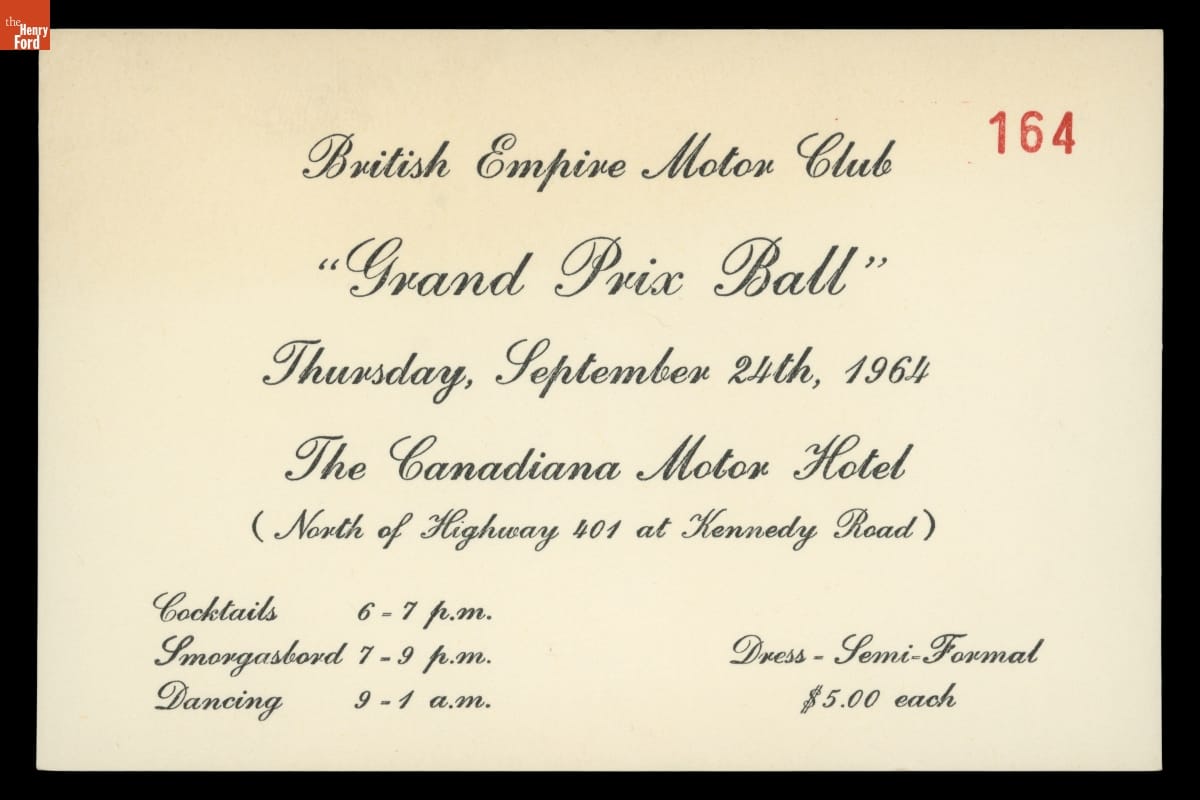 the
Henry
Ford
164
British Empire Motor Club
“Grand Prix Ball”
Thursday, September 24th, 1964
The Canadiana Motor Hotel
( North of Highway 401 at Kennedy Road )
Cocktails 6 - 7 p.m.
Smorgasbord 7 - 9 p.m.
Dancing 9 - 1 a.m.
Dress - Semi-Formal
$5.00 each